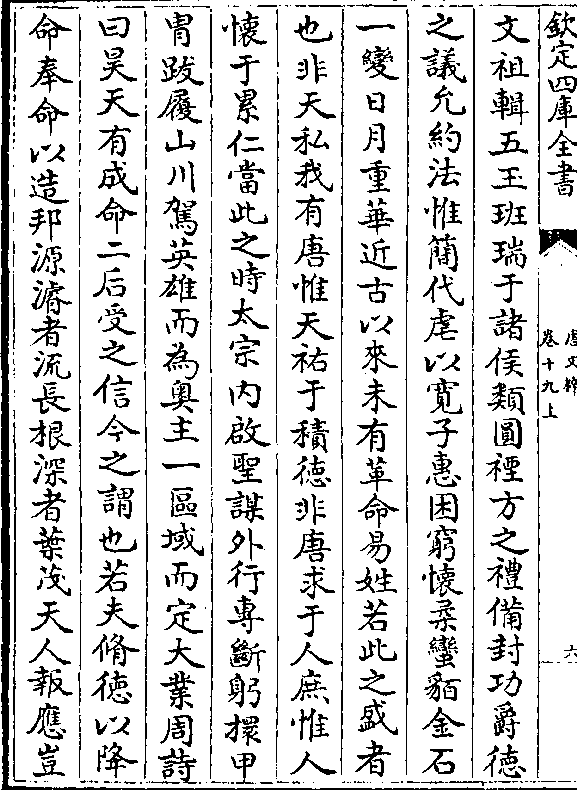 欽定四庫全書
唐文粹
卷十九上
六
文祖輯五玉班瑞于諸侯類圓禋方之禮備封功爵徳
之議允約法惟簡代虐以寛子惠困窮懷柔蠻貊金石
一變日月重華近古以來未有革命易姓若此之盛者
也非天私我有唐惟天祐于積徳非唐求于人庶惟人
懐于累仁當此之時太宗内啟聖謀外行專斷躬擐甲
胄跋履山川駕英雄而為奥主一區域而定大業周詩
曰昊天有成命二后受之信今之謂也若夫脩徳以降
命奉命以造邦源濬者流長根深者葉茂天人報應豈